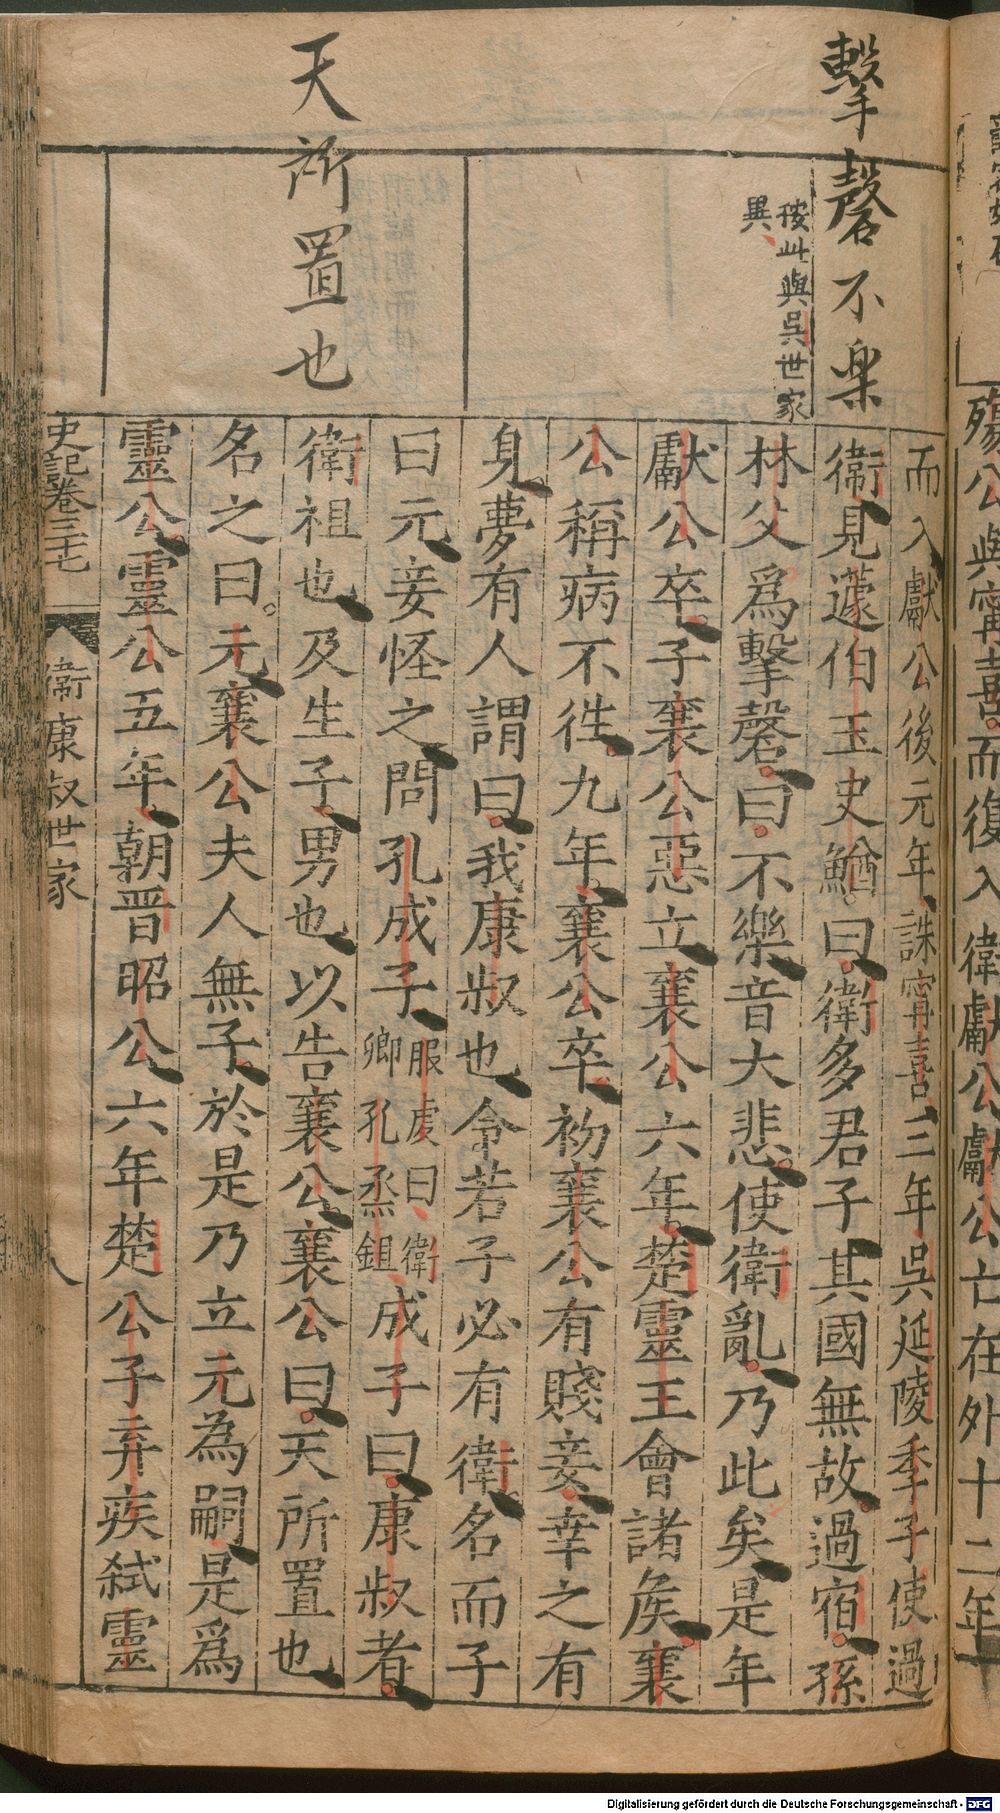 擊磬不樂
按此與吳世家
異
天所置也
而入獻公後元年誅甯喜三年吳延陵季子使過
衛見蘧伯玉史鰌曰衛多君子其國無故過宿孫
林父爲擊磬曰不樂音大悲使衛亂乃此矣是年
獻公卒子襄公惡立襄公六年楚靈王會諸矦襄
公稱病不徃九年襄公卒初襄公有賤妾幸之有
身夢有人謂曰我康叔也令若子必有衛名而子
曰元妾怪之問孔成子服虔曰衛卿孔烝鉏成子曰康叔者
衛祖也及生子男也以告襄公襄公曰天所置也
名之曰元襄公夫人無子於是乃立元為嗣是爲
靈公靈公五年朝晋昭公六年楚公子弃疾弑靈
史記卷三十七 衛康叔世家 八
殤公與甯喜而復入衛獻公獻公亡在外十二年
Digitalisierung gefördert durch die Deutsche Forschungsgemeinschaft - DFG